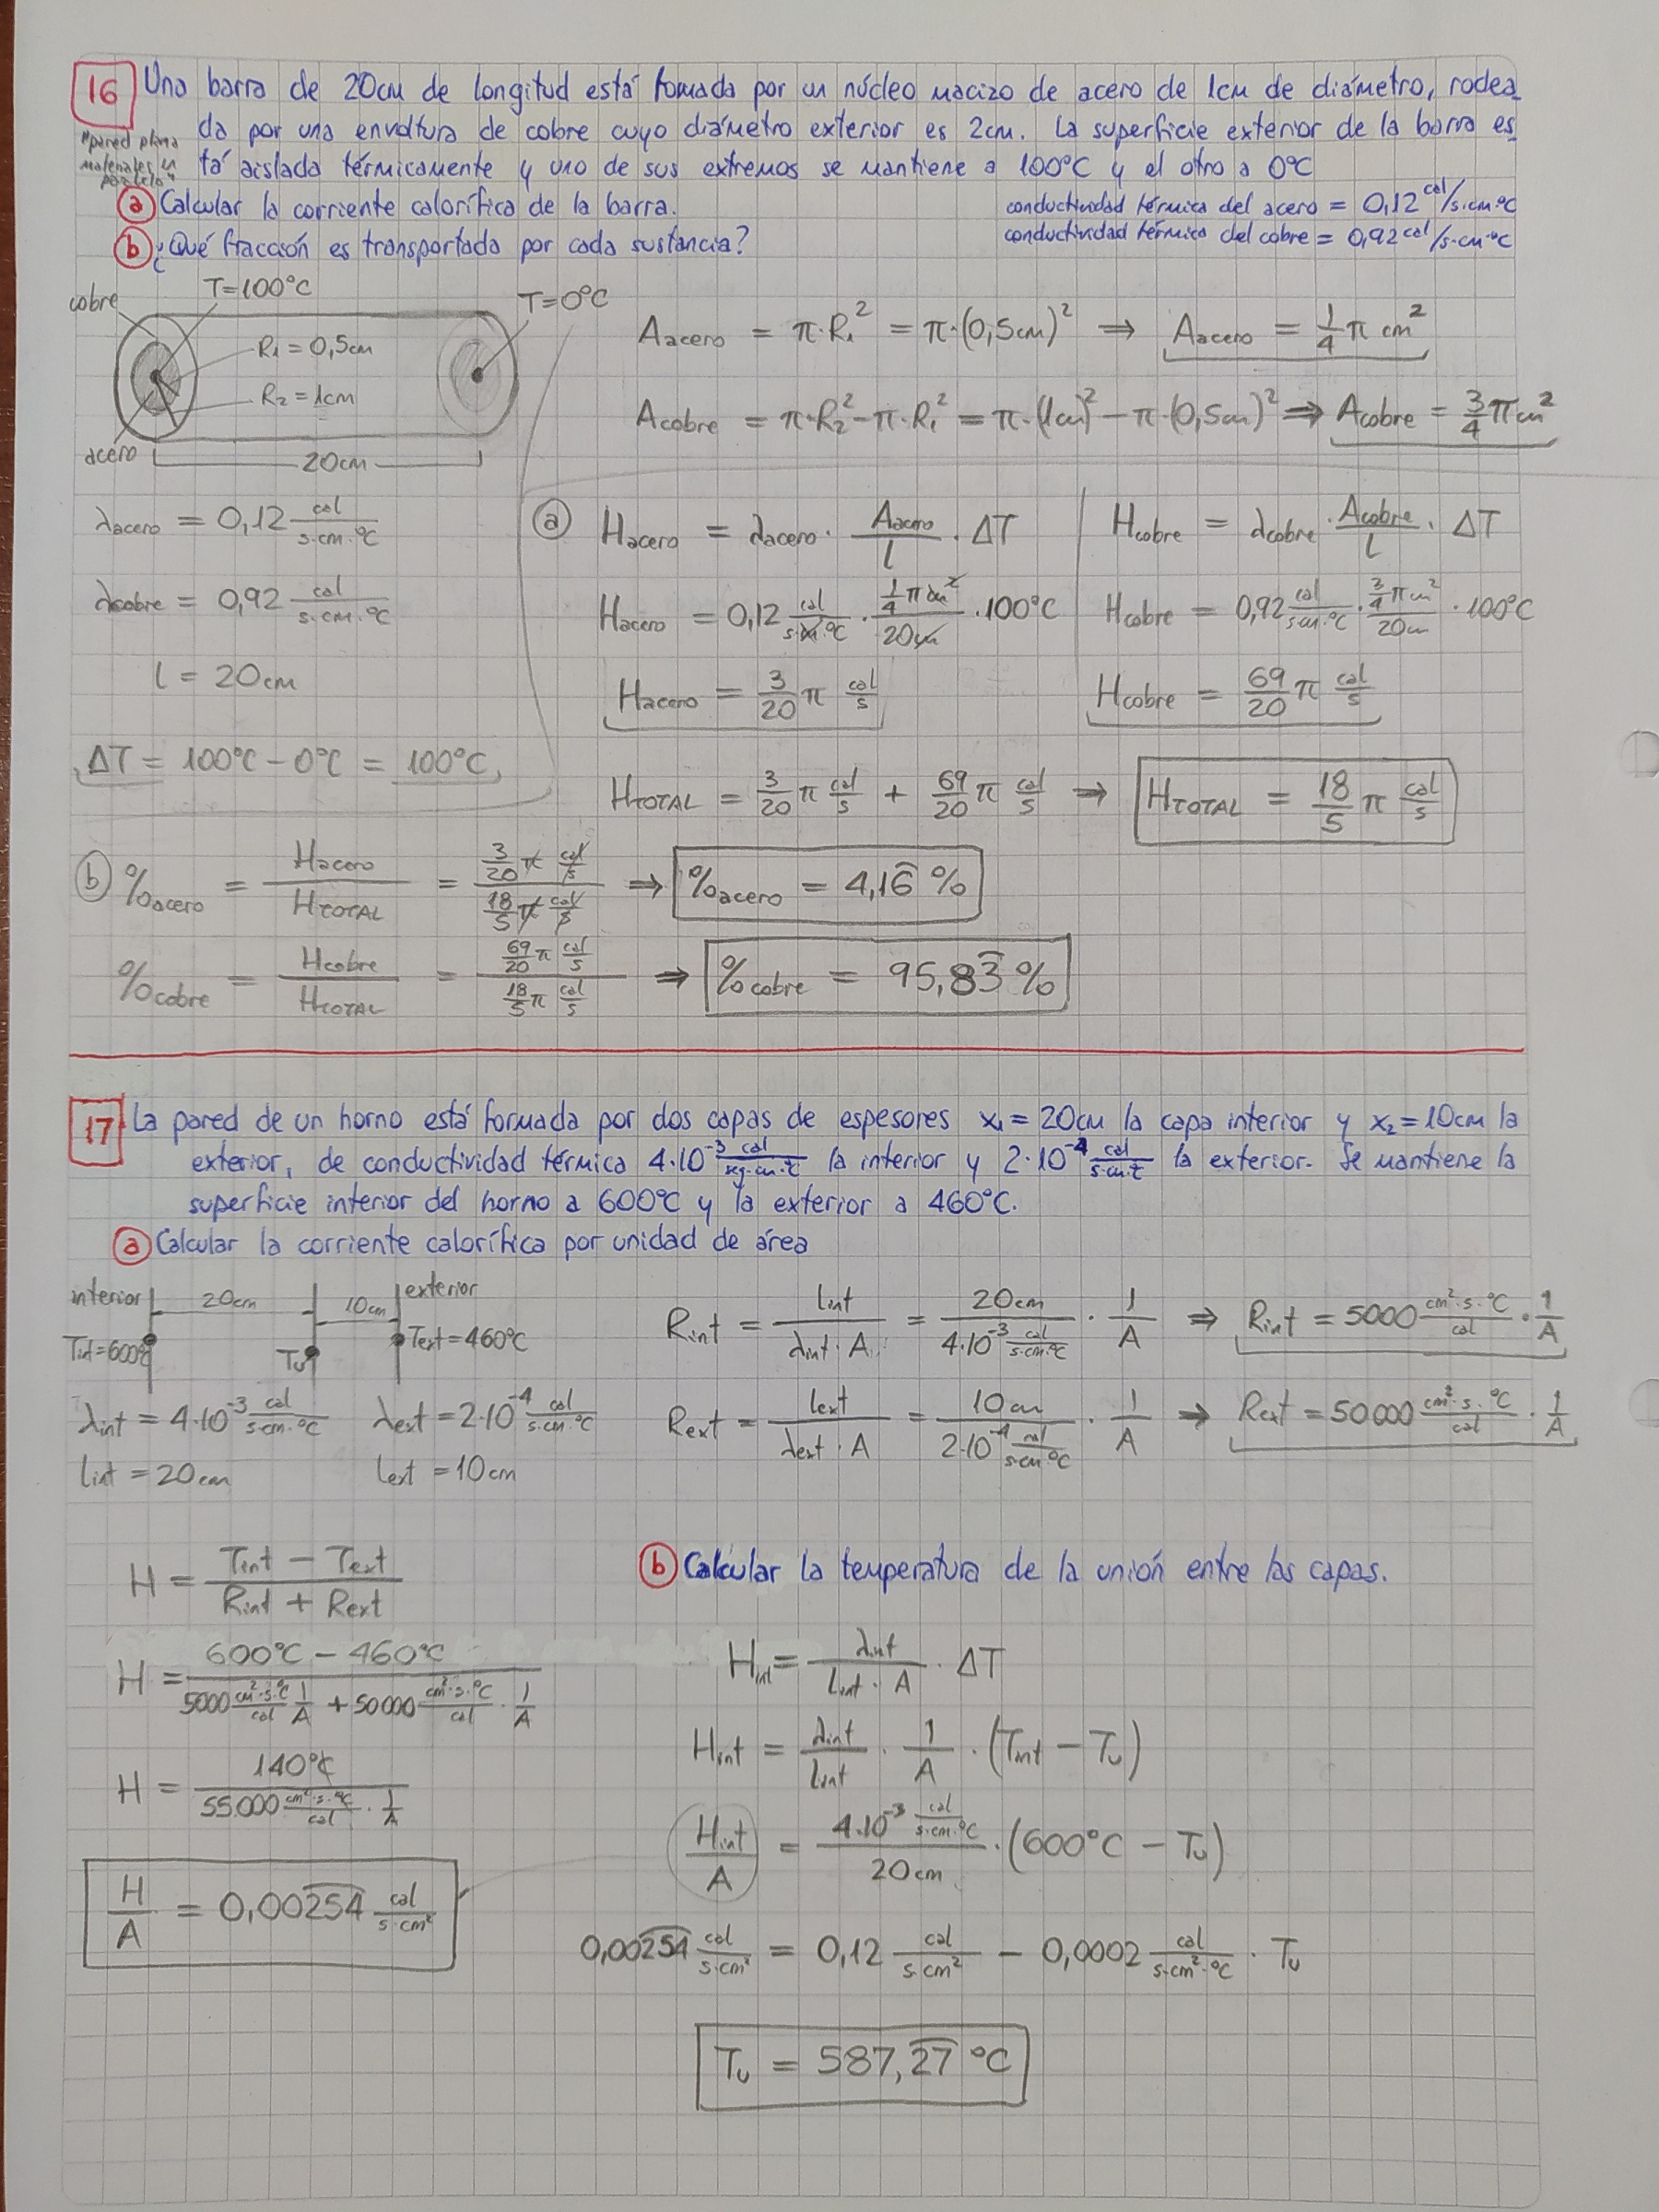 16 Una barra de 20cm de longitud está fomada por un núcleo macizo de acero de 1cm de diámetro, rodea_
"pared plana materiales en paralelo"
da por una envoltura de cobre cuyo diámetro exterior es 2cm. La superficie exterior de la barra es
tá aislada térmicamente y uno de sus extremos se mantiene a 100°C y el otro a 0°C
a Calcular la corriente calorífica de la barra.
conductividad térmica del acero = 0,12 cal/s·cm·°C
b ¿Qué fracción es transportada por cada sustancia?
conductividad térmica del cobre = 0,92 cal/s·cm·°C
cobre T=100°C T=0°C
R₁ = 0,5cm
R₂ = 1cm
acero 20cm
Aacero = π·R₁² = π·(0,5cm)² ⇒ Aacero = 1/4 π cm²
Acobre = π·R₂² − π·R₁² = π·(1cm)² − π·(0,5cm)² ⇒ Acobre = 3/4 π cm²
λacero = 0,12 cal/s·cm·°C
λcobre = 0,92 cal/s·cm·°C
l = 20cm
ΔT = 100°C − 0°C = 100°C
a Hacero = λacero · Aacero/l · ΔT
Hacero = 0,12 cal/s·cm·°C · 1/4 π cm²/20cm · 100°C
Hacero = 3/20 π cal/s
Hcobre = λcobre · Acobre/l · ΔT
Hcobre = 0,92 cal/s·cm·°C · 3/4 π cm²/20cm · 100°C
Hcobre = 69/20 π cal/s
HTOTAL = 3/20 π cal/s + 69/20 π cal/s ⇒ HTOTAL = 18/5 π cal/s
b %acero = Hacero/HTOTAL = 3/20 π cal/s / 18/5 π cal/s ⇒ %acero = 4,16̄ %
%cobre = Hcobre/HTOTAL = 69/20 π cal/s / 18/5 π cal/s ⇒ %cobre = 95,83̄ %
17 La pared de un horno está formada por dos capas de espesores x₁ = 20cm la capa interior y x₂ = 10cm la
exterior, de conductividad térmica 4·10⁻³ cal/kg·cm·°C la interior y 2·10⁻⁴ cal/s·cm·°C la exterior. Se mantiene la
superficie interior del horno a 600°C y la exterior a 460°C.
a Calcular la corriente calorífica por unidad de área
interior 20cm 10cm exterior
Tint=600°C Tu Text=460°C
λint = 4·10⁻³ cal/s·cm·°C λext = 2·10⁻⁴ cal/s·cm·°C
lint = 20cm lext = 10cm
Rint = lint/λint·A = 20cm/4·10⁻³ cal/s·cm·°C · 1/A ⇒ Rint = 5000 cm²·s·°C/cal · 1/A
Rext = lext/λext·A = 10cm/2·10⁻⁴ cal/s·cm·°C · 1/A ⇒ Rext = 50000 cm²·s·°C/cal · 1/A
H = Tint − Text/Rint + Rext
H = 600°C − 460°C/5000 cm²·s·°C/cal 1/A + 50000 cm²·s·°C/cal · 1/A
H = 140°C/55.000 cm²·s·°C/cal · 1/A
H/A = 0,002̅5̅4̅ cal/s·cm²
b Calcular la temperatura de la unión entre las capas.
Hint = λint/lint·A · ΔT
Hint = λint/lint · 1/A · (Tint − Tu)
Hint/A = 4·10⁻³ cal/s·cm·°C/20cm · (600°C − Tu)
0,002̅5̅4̅ cal/s·cm² = 0,12 cal/s·cm² − 0,0002 cal/s·cm²·°C · Tu
Tu = 587,2̅7̅ °C